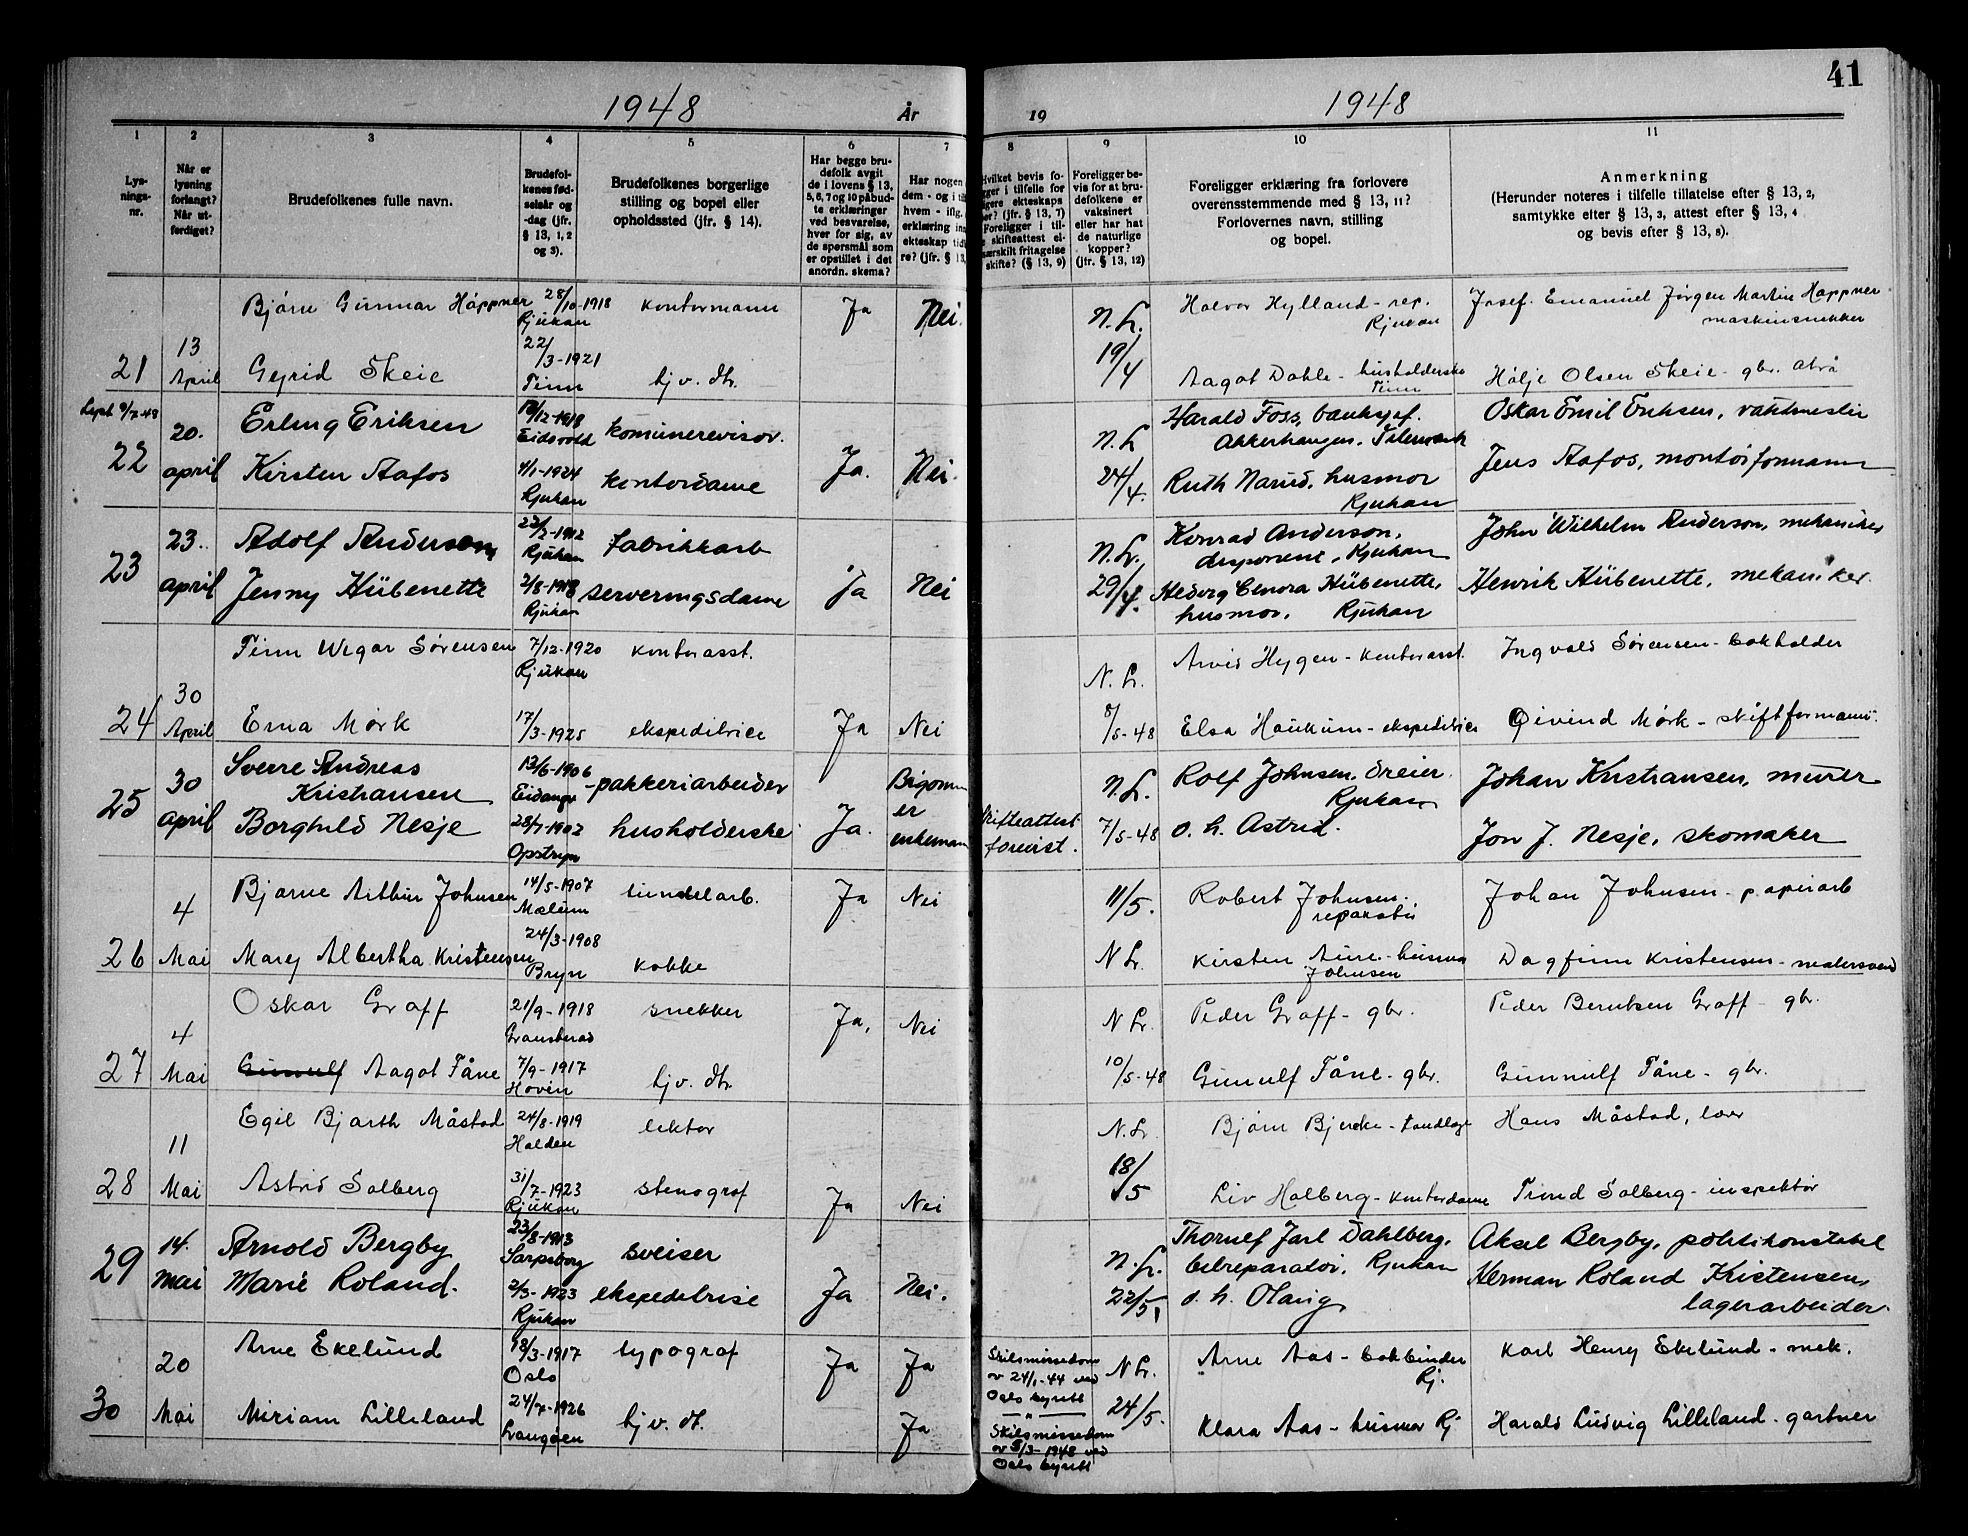 41
1948 År 19 1948
1 2 3 4 5 6 7 8 9 10 11
Lys-
nings-
nr.
Når er
lysning
forlangt?
Når ut-
ferdiget?
Brudefolkenes fulle navn.
Brudefol-
kenes fød-
selsår og
-dag (jfr.
§ 13, 1, 2
og 3).
Brudefolkenes borgerlige
stilling og bopel eller
opholdssted (jfr. § 14).
Har begge bru-
defolk avgit
de i lovens § 13,
5, 6, 7 og 10 påbud-
te erklæringer
ved besvarelse,
hver for sig, av
de spørsmål som
er opstillet i det
anordn. skema?
Har nogen
dem - og i ti
hvem - iflg.
erklæring in
ekteskap tid
re? (jfr. § 13,
Hvilket bevis fo-
gger i tilfelle for
igere ekteskaps
er? (jfr. § 13, 7)
Foreligger i til-
e skifteattest el-
særskilt fritagelse
skifte? (§ 13, 9)
Foreligger be-
vis for at bru-
defolkene er
vaksinert
eller har hat
de naturlige
kopper?
(jfr. § 13, 12)
Foreligger erklæring fra forlovere
overensstemmende med § 13, 11?
Forlovernes navn, stilling
og bopel.
Anmerkning
(Herunder noteres i tilfelle tillatelse efter § 13, 2,
samtykke efter § 13, 3, attest efter § 13, 4
og bevis efter § 13, 8).
Bjørn Gunnar Høppner 28/10-1918 kontormann Ja Nei. N.L. Halvor Hylland - rep. Josef Emanuel Jørgen Martin Høppner
Rjukan Rjukan maskinsnekker
21 13 April Gyrid Skeie 22/3-1921 Tinn hjv. dtr. 19/4 Aagot Dahle - husholderske Tinn Hølje Olsen Skeie - gbr. Atrå
22 20. april Erling Eriksen 1918 Eidsvold komunerevisor. Ja. Nei. N.L. Harald Foss, banksjef. Oskar Emil Eriksen, vaktmester
Akkerhaugen, Telemark
Kirsten Aafos 4/1-1924 Rjukan kontordame 24/4. Ruth Narud, husmor Rjukan Jens Aafos, montørformann
23 23. april Adolf Anderson 1912 Rjukan fabrikkarb Ja Nei N.L. Konrad Anderson, disponent, Rjukan John Wilhelm Anderson, mekaniker
Jenny Hübenette 2/8-1918 Rjukan serveringsdame 29/4. Hedvig Hübenette, husmor, Rjukan Henrik Hübenette, mekaniker.
Finn Wegar Sørensen 7/12-1920 Rjukan kontorasst. N.L. Arvid Hygen - kontorasst. Ingvald Sørensen - bokholder
24 30 April Erna Mørk 17/3-1925 ekspeditrice Ja Nei 8/5-48 Elsa Haukum - ekspeditrice Øivind Mørk - skiftformann.
25 30 april Sverre Andreas Kristiansen 13/6-1906 Eidanger pakkeriarbeider Ja. Brudgommen er enkemann N.L. Rolf Johnsen, dreier. Rjukan Johan Kristiansen, murer
Borghild Nesje 1902 Opstryn husholderske Skifteattest forevist. 7/5-48 o. h. Astrid. Jon J. Nesje, skomaker
Bjarne Arthur Johnsen 14/5-1907 Mælum tunnelarb. Ja Nei 11/5. Robert Johnsen. reparatør Johan Johnsen - papirarb
26 4 Mai Mary Albertha Kristensen 24/3-1908 Bryn kokke N L. Kirsten Aine Johnsen - husmor Dagfinn Kristensen - malersvend
Oskar Graff 21/9-1918 Gransherad snekker Ja, Nei N L. Peder Graff - gbr. Peder Berntsen Graff - gbr.
27 4 Mai Gunnulf Aagot Fåne 7/9-1917 Hovin hjv. dtr. 10/5-48 Gunnulf Fåne - gbr. Gunnulf Fåne - gbr.
Egil Bjarth Måstad 24/8-1919 Halden lektor N.L. Bjørn Bjercke - tandlæge Hans Måstad, lærer
28 11 Mai Astrid Solberg 31/7-1923 Rjukan stenograf Ja Nei 18/5 Liv Halberg - kontordame Trond Solberg - inspektør
29 14. mai Arnold Bergby 23/8-1913 Sarpsborg sveiser Ja Nei. N.L. Thorulf Jarl Dahlberg, bilreparatør, Rjukan Aksel Bergby, politikonstabel
Marie Roland. 2/3-1923 Rjukan ekspeditrise 22/5, o. h. Olaug Herman Roland Kristensen, lagerarbeider.
Arne Ekelund 18/3-1917 Oslo typograf Ja Ja Skilsmissedom av 24/1-44 ved Oslo byrett N L. Arne Aas - bokbinder Rj. Karl Henry Ekelund - mek.
30 20 Mai Miriam Lilleland 1926 Langøen hjv. dt. Ja Skilsmissedom av 5/3-1948 ved Oslo byrett 24/5. Klara Aas - husmor Rj Harald Ludvig Lilleland - gartner